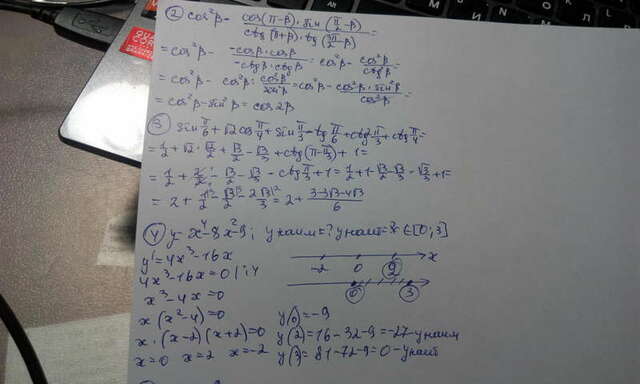 ② cos²β - cos(π-β)·sin(π/2-β) / ctg(π+β)·tg(π/2-β) =
= cos²β - -cosβ·cosβ / -ctgβ·ctgβ = cos²β - cos²β / ctg²β =
= cos²β - cos²β : cos²β/sin²β = cos²β - cos²β·sin²β / cos²β =
= cos²β - sin²β = cos2β
③ sin π/6 + √2 cos π/4 + sin π/3 - tg π/6 + ctg π/3 + ctg π/4 =
= 1/2 + √2 · √2/2 + √3/2 - √3/3 + ctg(π - π/3) + 1 =
= 1/2 + 2/2 - √3/2 - √3/3 - ctg π/3 + 1 = 1/2 + 1 - √3/2 - √3/3 - √3/3 + 1 =
= 2 + 1/2 - √3/2 - 2√3/3 = 2 + 3-3√3-4√3 / 6
④ y = x⁴ - 8x² - 9; y наим = ? y наиб = ? ∈ [0; 3]
y' = 4x³ - 16x
4x³ - 16x = 0 | : 4
-2 0 2 x
x³ - 4x = 0
0 3
x(x² - 4) = 0
y(0) = -9
x·(x-2)(x+2) = 0
y(2) = 16 - 32 - 9 = -27 - y наим
x = 0 x = 2 x = -2
y(3) = 81 - 72 - 9 = 0 - y наиб